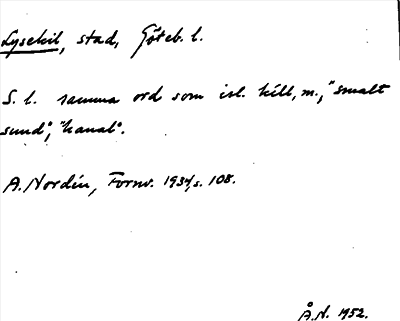 Lysekil, stad, Göteb. l.
S. l. samma ord som isl. kíll, m., "smalt
sund", "kanal".
A. Nordén, Fornv. 1934/s. 108.
Å.H. 1952.